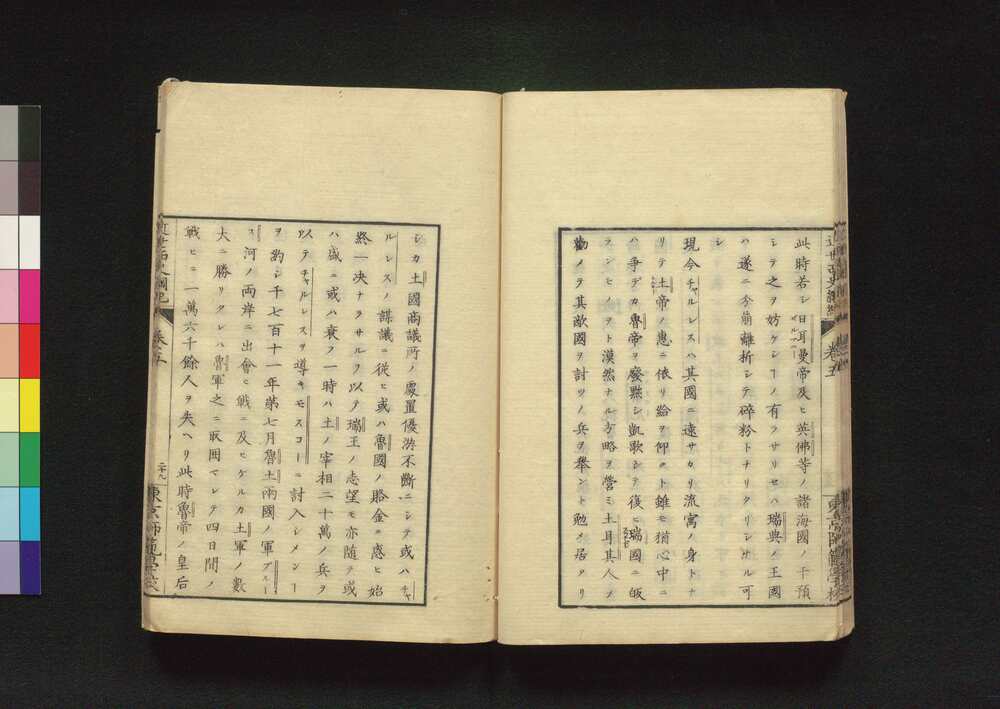 此時若シ日耳曼帝及ヒ英佛等ノ諸海國ノ干預
シテ之ヲ妨ケシヿノ有ラサリセハ瑞典ノ王國
ハ遂ニ分崩離析シテ碎粉トナリタリシナル可
シ
現今チャルレスハ其國ニ遠サカリ流寓ノ身トナ
リテ土帝ノ惠ニ依リ給ヲ仰クト雖モ猶心中ニ
ハ爭デカ魯帝ヲ廢黜シ凱歌シテ復ヒ瑞國ニ皈
ランヒノヲト漠然ナル方略ヲ營ミ土耳其人ノ
勸メヲ其敵國ヲ討ツノ兵ヲ舉ントヿ勉メ居タリ
シカ土國商議所ノ處置優游不斷ニシテ或ハチャ
ルレスノ謀議ニ從ヒ或ハ魯國ノ賂金ニ惑ヒ始
終一决ナラサルヲ以テ瑞王ノ志望モ亦随テ或
ハ盛ニ或ハ衰フ一時ハ土ノ宰相二十萬ノ兵ヲ
以テチャルレスヲ導キモスコーニ討入シメンヿ
ヲ約シ千七百十一年第七月魯土兩國ノ軍プルー
ス河ノ両岸ニ出會ヒ戰ニ及ヒケルカ土軍ノ數
大ニ勝リタレハ魯軍之ニ取囲マレテ四日間ノ
戰ヒニ一萬六千餘人ヲ失ヘリ此時魯帝ノ皇后
近世西史綱紀 卷之五
二十九
東京師範學校